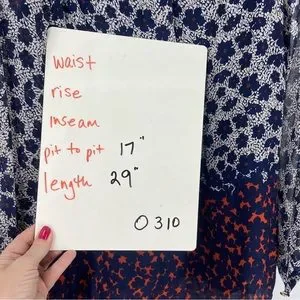 waist
rise
inseam
pit to pit 17"
length 29"
0310